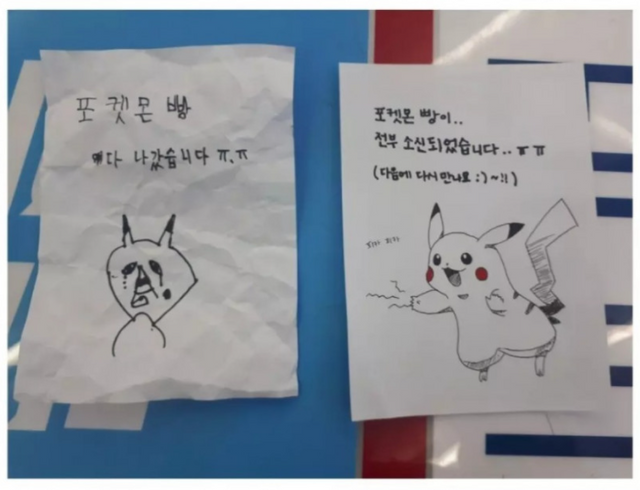 포켓몬 빵
다 나갔습니다 ㅠ.ㅠ
포켓몬 빵이..
전부 소신되었습니다.. ㅠㅠ
(다음에 다시 만나요 :) ~!!)
찌지 지지